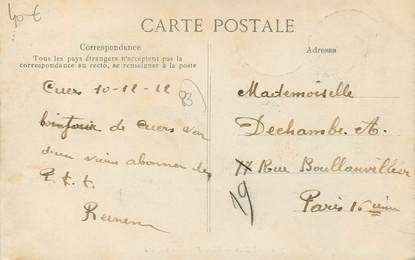 40 €
CARTE POSTALE
Correspondance
Tous les pays étrangers n'acceptent pas la
correspondance au recto, se renseigner à la poste
Adresse
Cuers 10-12-12
83
bonjour de Cuers d'un
vieux abonné des
P. t. t.
Mademoiselle
Dechambe. A.
77 Rue Boullainvilliers
19
Paris 16 ième